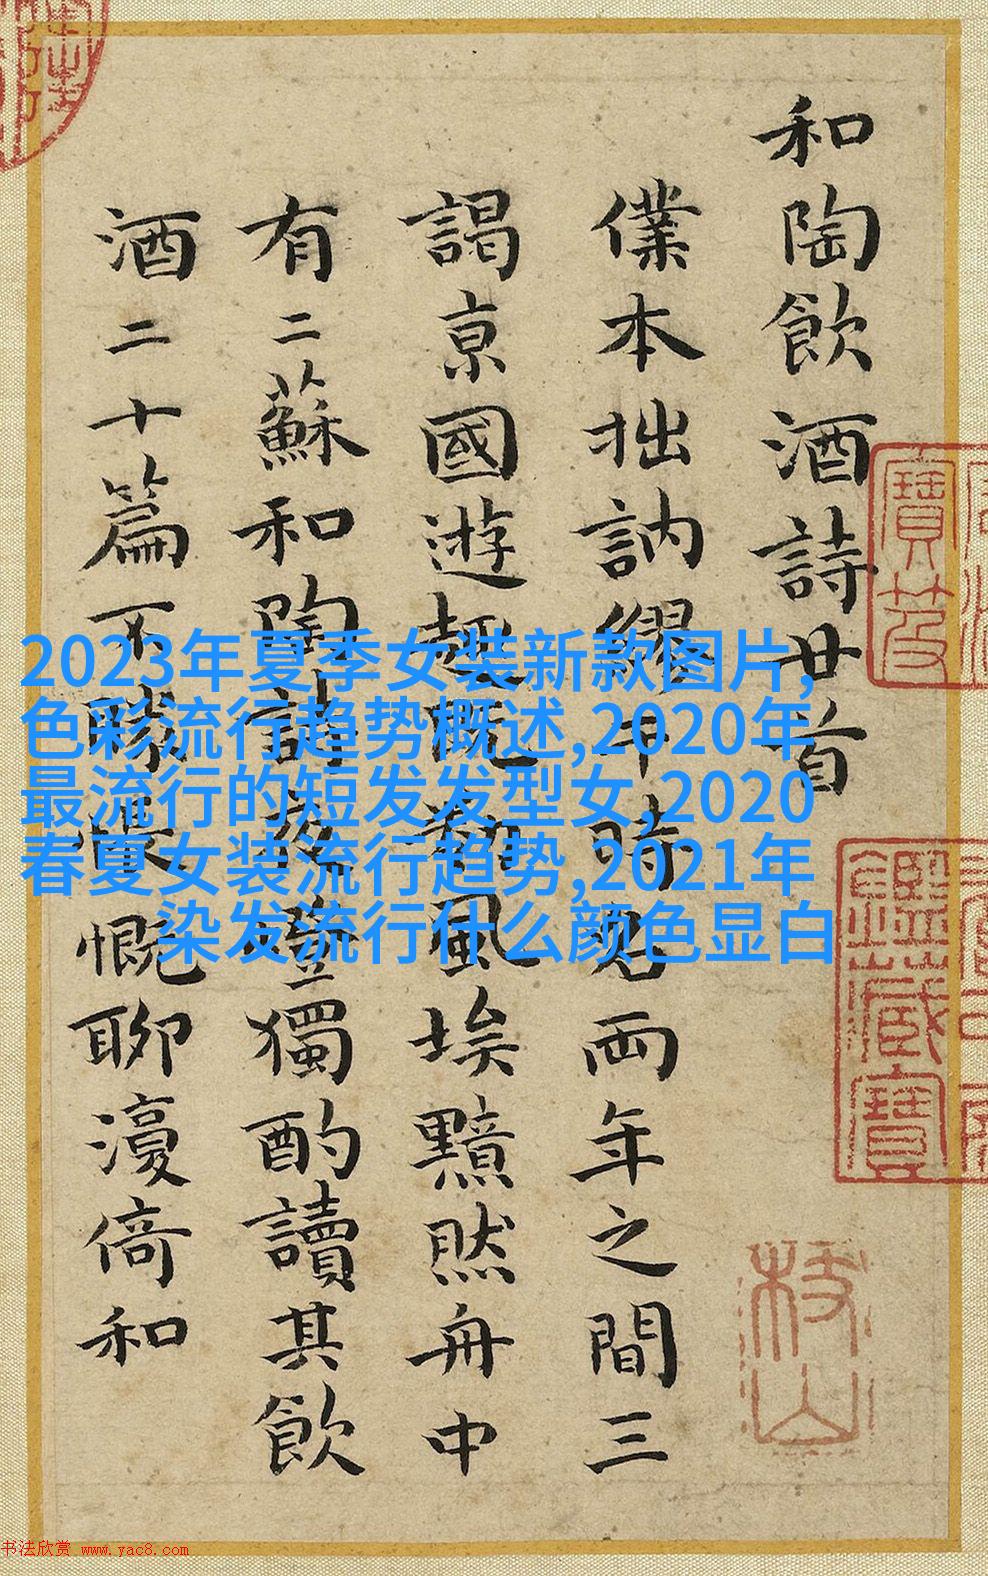 和陶飲酒詩廿首
僕本拙訥繆干時兩年之間三
謁京國遊趣風埃黯然舟中
有二蘇和陶詩燈獨酌讀其飲
酒二十篇不勝悵慨聊復倚和
寶笈
鑑藏寶
枝山
2023年夏季女装新款图片,
色彩流行趋势概述,2020年
最流行的短发发型女,2020
春夏女装流行趋势,2021年
染发流行什么颜色显白
书法欣赏 www.yac8.com